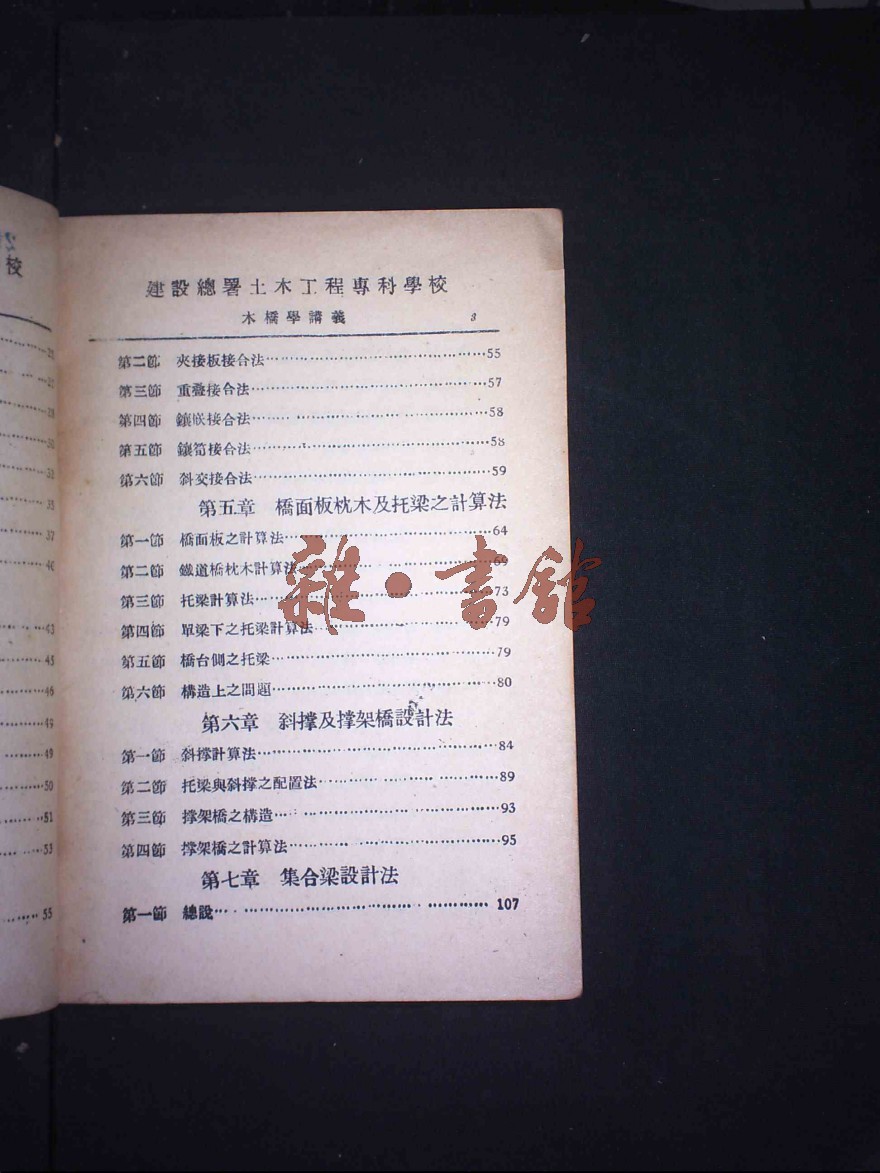 校
建設總署土木工程專科學校
木橋學講義 3
第二節 夾接板接合法……55
第三節 重疊接合法……57
第四節 鑲嵌接合法……58
第五節 鑲筍接合法……58
第六節 斜交接合法……59
第五章 橋面板枕木及托梁之計算法
第一節 橋面板之計算法……64
第二節 鐵道橋枕木計算法……69
第三節 托梁計算法……73
第四節 單梁下之托梁計算法……79
第五節 橋台側之托梁……79
第六節 構造上之問題……80
第六章 斜撐及撐架橋設計法
第一節 斜撐計算法……84
第二節 托梁與斜撐之配置法……89
第三節 撐架橋之構造……93
第四節 撐架橋之計算法……95
第七章 集合梁設計法
第一節 總說……107
雜·書館
43
45
46
49
49
50
51
53
55